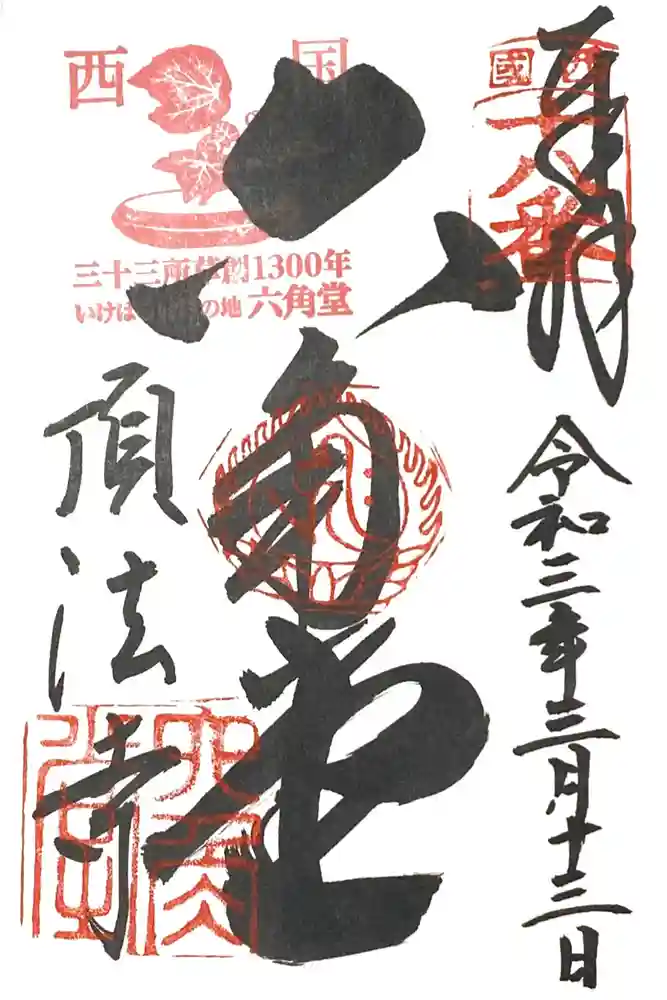 奉拝
西國
十八番
令和三年三月十三日
六角堂
西国
三十三所草創1300年
いけばな発祥の地 六角堂
頂法寺
六角堂